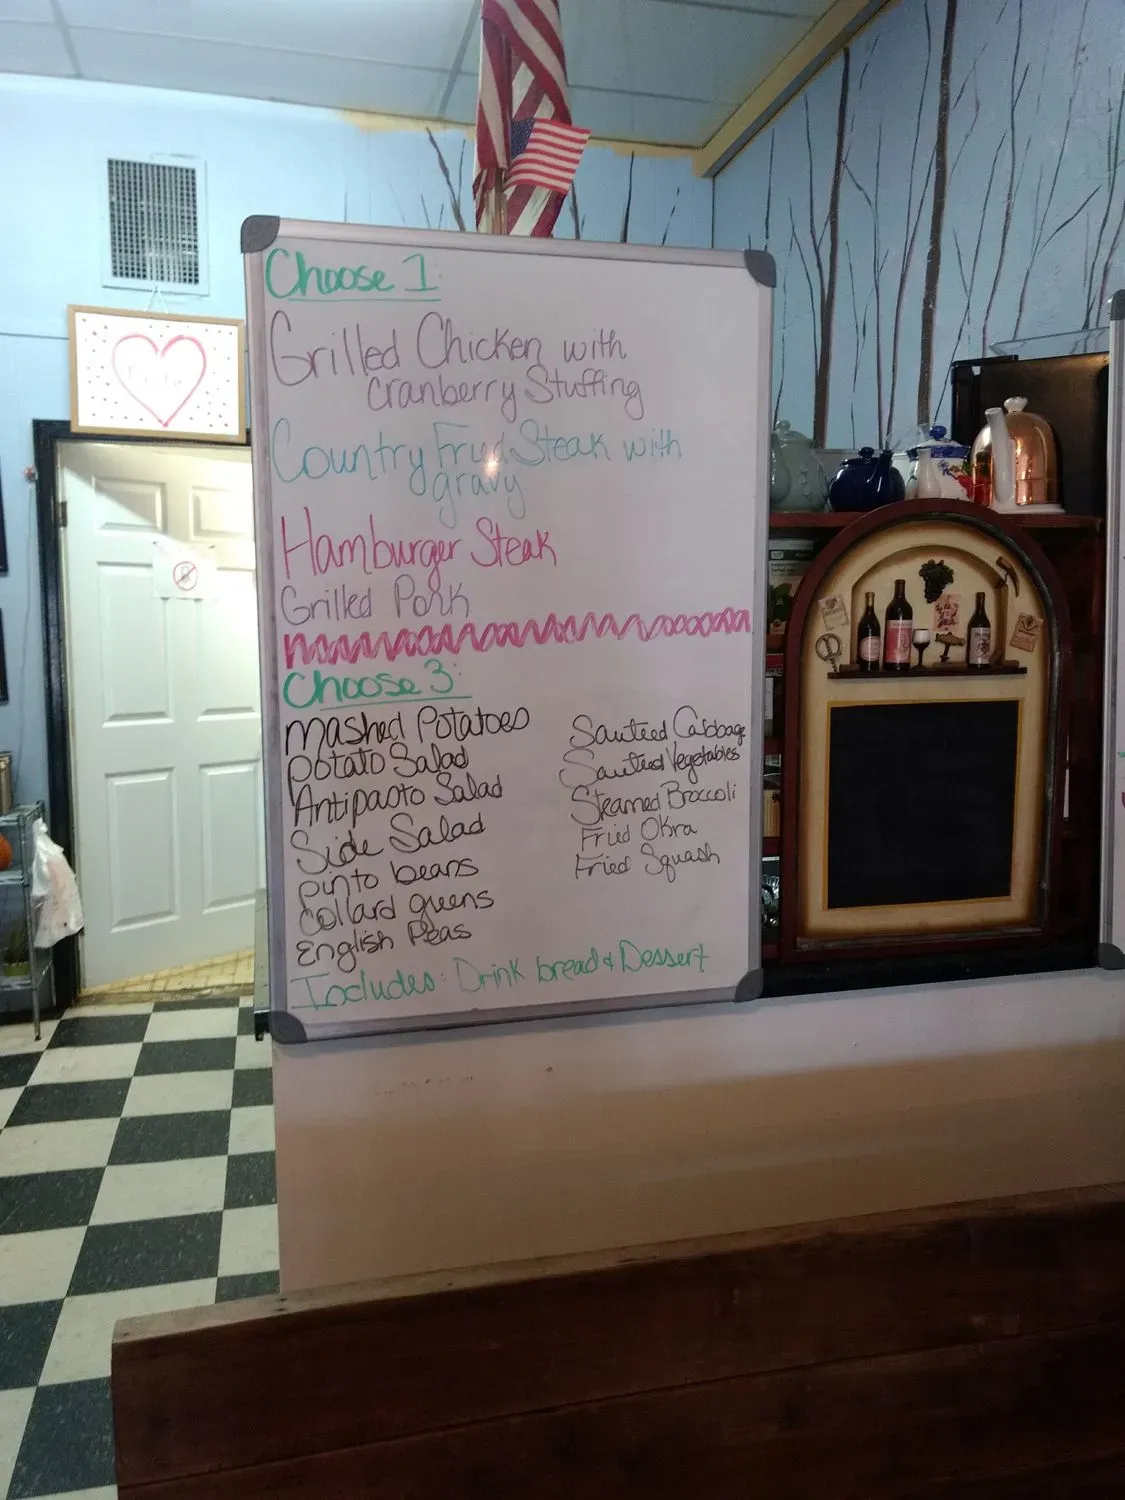 Choose 1:
Grilled Chicken with
Cranberry Stuffing
Country Fried Steak with
gravy
Hamburger Steak
Grilled Pork
Choose 3:
Mashed Potatoes
Potato Salad
Antipasto Salad
Side Salad
pinto beans
Collard greens
English Peas
Sauteed Cabbage
Sauteed Vegetables
Steamed Broccoli
Fried Okra
Fried Squash
Includes: Drink bread & Dessert